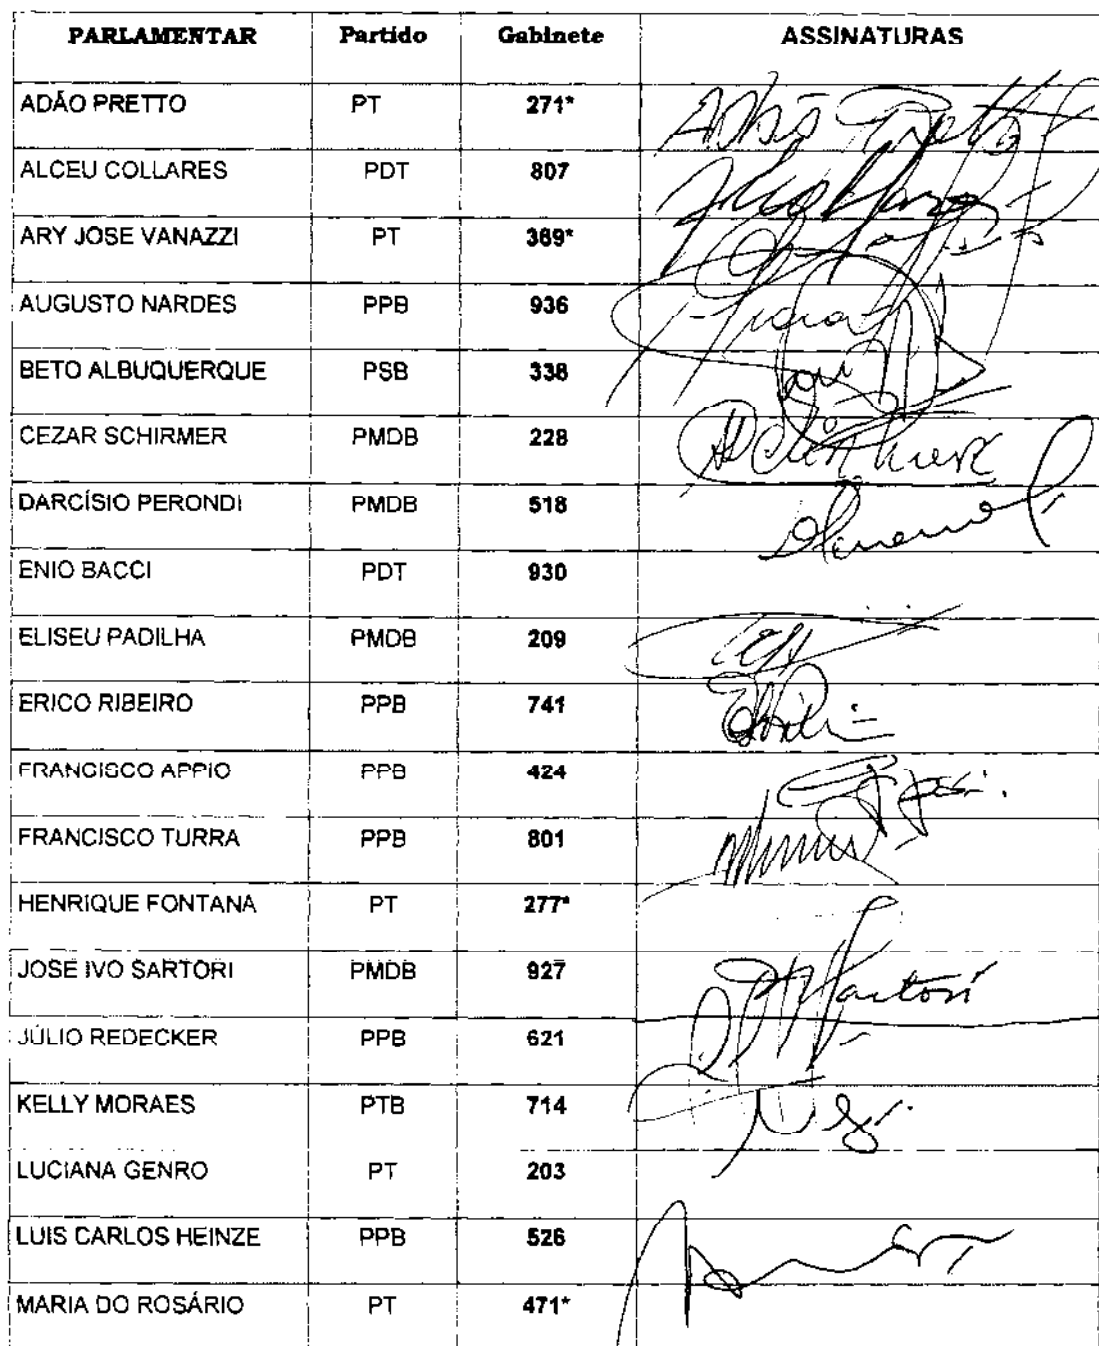 PARLAMENTAR Partido Gabinete ASSINATURAS
ADÃO PRETTO PT 271* Adão Pretto
ALCEU COLLARES PDT 807
ARY JOSE VANAZZI PT 369*
AUGUSTO NARDES PPB 936
BETO ALBUQUERQUE PSB 338
CEZAR SCHIRMER PMDB 228
DARCÍSIO PERONDI PMDB 518
ENIO BACCI PDT 930
ELISEU PADILHA PMDB 209
ERICO RIBEIRO PPB 741
FRANCISCO APPIO PPB 424
FRANCISCO TURRA PPB 801
HENRIQUE FONTANA PT 277*
JOSE IVO SARTORI PMDB 927 Sartori
JÚLIO REDECKER PPB 621
KELLY MORAES PTB 714
LUCIANA GENRO PT 203
LUIS CARLOS HEINZE PPB 526
MARIA DO ROSÁRIO PT 471*